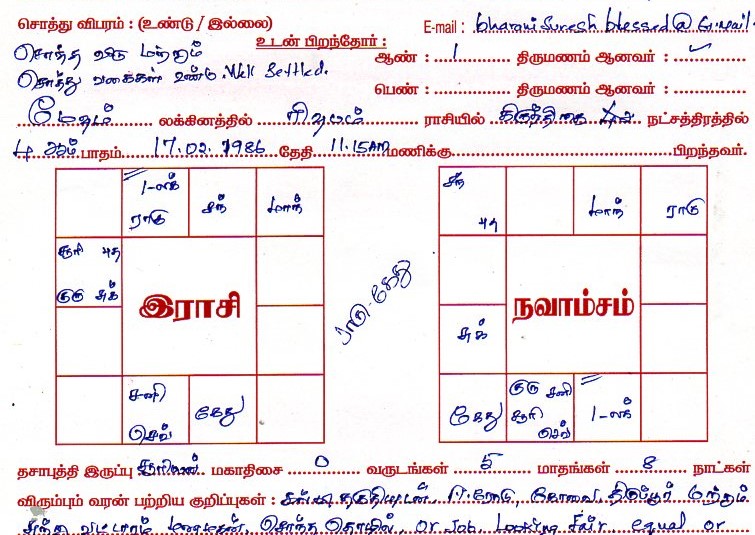 சொத்து விபரம் : (உண்டு / இல்லை) E-mail : bharanisureshblessed@Gmail.
சொந்த வீடு மற்றும் உடன் பிறந்தோர் : ஆண் : 1 திருமணம் ஆனவர் : ✓
சொத்து வகைகள் உண்டு. Well Settled. பெண் : திருமணம் ஆனவர் :
மேஷம் லக்கினத்தில் ரிஷபம் ராசியில் கிருத்திகை நட்சத்திரத்தில்
4 ஆம் பாதம் 17.02.1986 தேதி 11.15AM மணிக்கு பிறந்தவர்.
1-லக் சந் மாந்
ராகு
சூரி புத
குரு சுக்
இராசி
சனி கேது
செவ்
ராகு-கேது
சந் மாந் ராகு
புத
நவாம்சம்
சுக்
கேது குரு சனி 1-லக்
சூரி செவ்
தசாபுத்தி இருப்பு சூரியன் மகாதிசை 0 வருடங்கள் 5 மாதங்கள் 8 நாட்கள்
விரும்பும் வரன் பற்றிய குறிப்புகள் : ஈரோடு, கோவை, திருப்பூர் மற்றும்
சுற்று வட்டாரம் மணமகன், சொந்த தொழில், or Job, Looking Fair, equal or